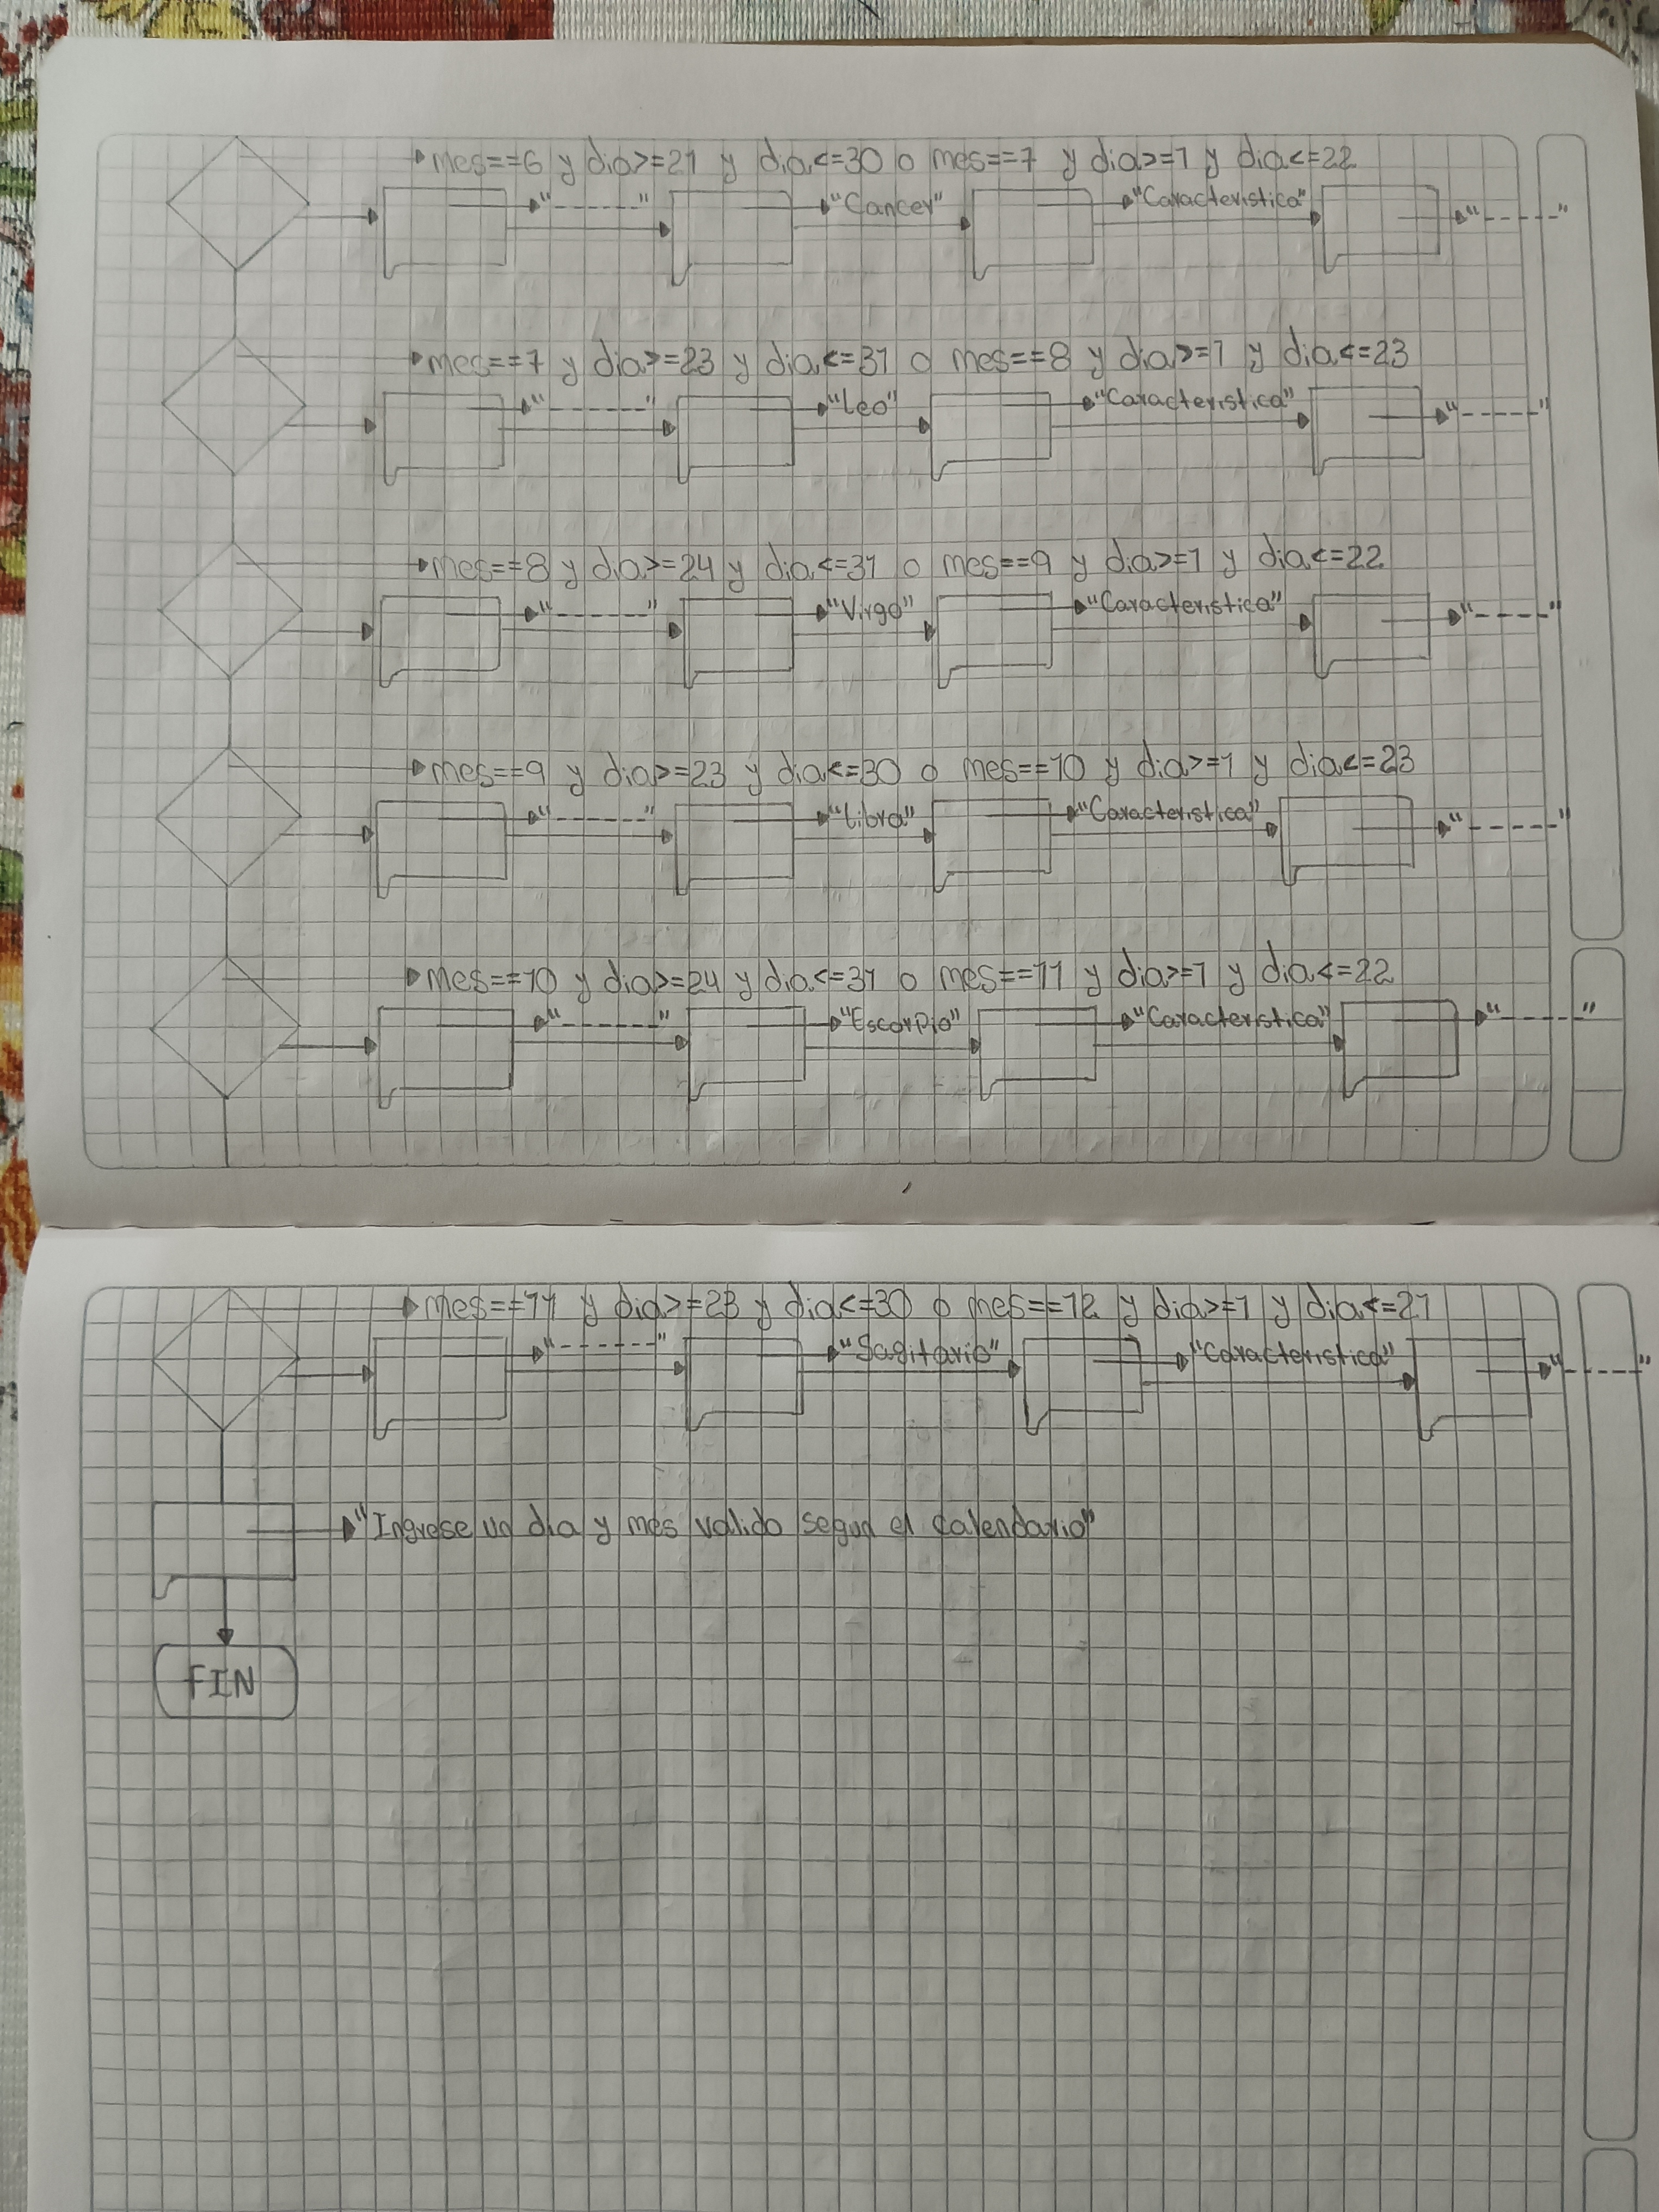 mes==6 y dia>=21 y dia<=30 o mes==7 y dia>=1 y dia<=22
"------" "Cancer" "Caracteristica" "----"
mes==7 y dia>=23 y dia<=31 o mes==8 y dia>=1 y dia<=23
"------" "Leo" "Caracteristica" "----"
mes==8 y dia>=24 y dia<=31 o mes==9 y dia>=1 y dia<=22
"------" "Virgo" "Caracteristica" "----"
mes==9 y dia>=23 y dia<=30 o mes==10 y dia>=1 y dia<=23
"------" "Libra" "Caracteristica" "----"
mes==10 y dia>=24 y dia<=31 o mes==11 y dia>=1 y dia<=22
"------" "Escorpio" "Caracteristica" "----"
mes==11 y dia>=23 y dia<=30 o mes==12 y dia>=1 y dia<=21
"------" "Sagitario" "Caracteristica" "----"
"Ingrese un dia y mes valido segun el calendario"
FIN